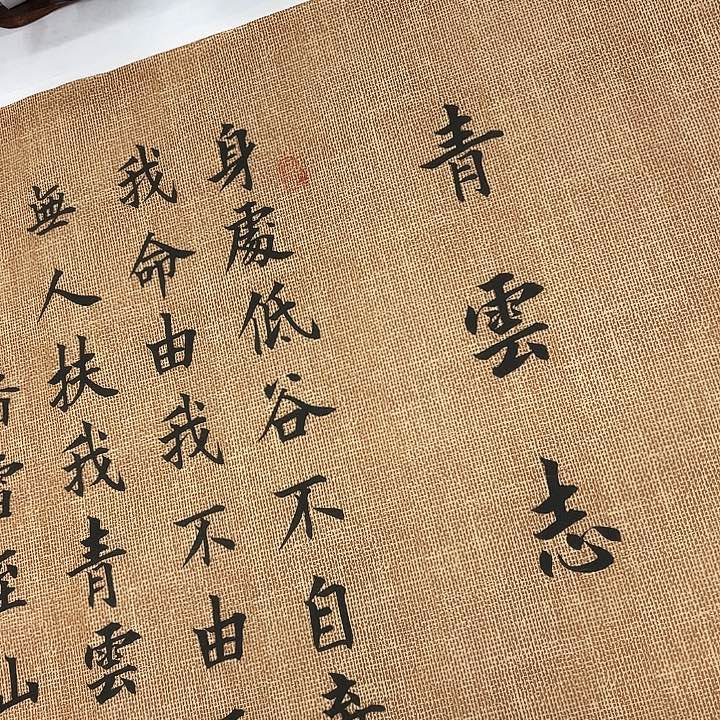 青雲志
身處低谷不自棄
我命由我不由
無人扶我青雲
雪至山